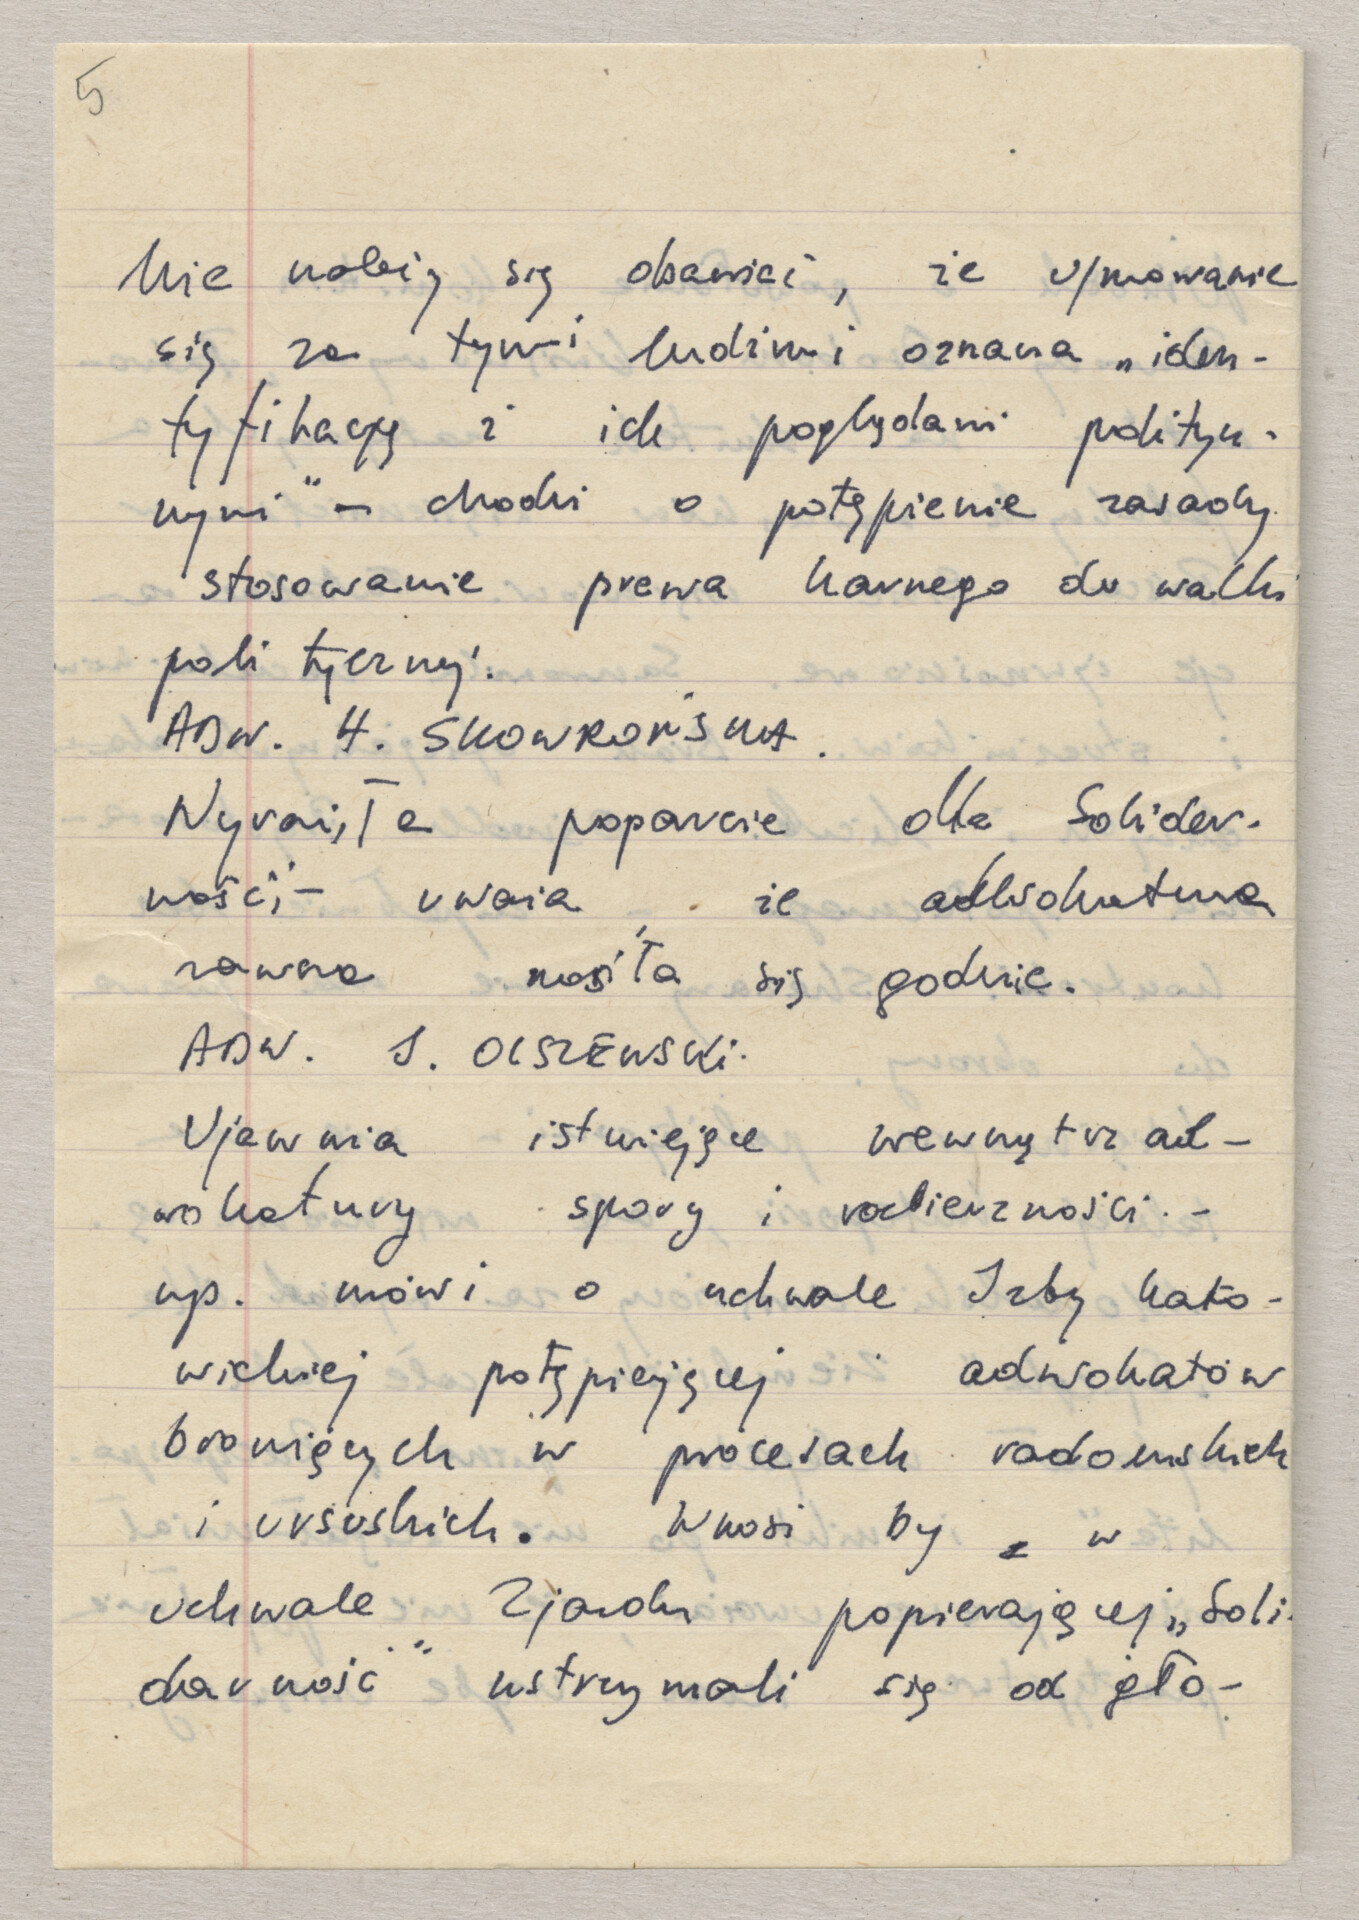 5
Nie należy się obawiać, że ujmowanie
się za tymi ludźmi oznacza „iden-
tyfikację z ich poglądami politycz-
nymi" – chodzi o potępienie zasady
stosowanie prawa karnego do walki
politycznej.
ADW. H. SKOWROŃSKA.
Wyraziła poparcie dla Solidar-
ności, – uważa że adwokatura
zawsze nosiła się godnie.
ADW. J. OLSZEWSKI.
Ujawnia istniejące wewnątrz ad-
wokatury spory i rozbieżności. –
np. mówi o uchwale Izby kato-
wickiej potępiającej adwokatów
broniących w procesach radomskich
i ursuskich. Wnosi by w
uchwale Zjazdu popierającej „Soli-
darność" wstrzymali się od gło-